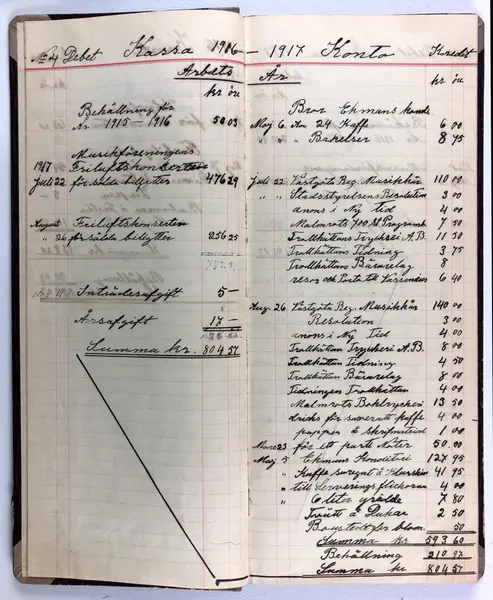 No 4 Debet Kassa 1916
Arbets
kr öre
Behållning för
År 1915 – 1916 50 03
Musikföreningens
1917 Friluftskonserten
Juli 22 försålda biljetter 476 29
Augusti Friluftskonserten
" 26 försålda biljetter 256 25
Inträdesafgift 5 –
Årsafgift 17 –
Summa kr. 804 57
– 1917 Konto Kredit
År
kr öre
Bror Ekmans kond.
Maj 6 24 Kaffe 6 00
" " Bakelser 8 75
Juli 22 Västgöta Reg. Musikkår 110 00
" " Stadsstyrelsens Resolution 3 00
anons i Ny tid 4 00
Malmrots 700 st Program 7 50
Trollhättans Tryckeri A.B. 11 50
Trollhättans Tidning 3 75
Trollhättans Bärarelag 8
resor och Porto till Vägsenbus 6 40
Aug. 26 Västgöta Reg. Musikkår 140 00
Resolution 3 00
anons i Ny Tid 4 00
Trollhättan Tryckeri A.B. 8 00
Trollhättan Tidning 4 50
Trollhättan Bärarelag 8 00
Tidningen Trollhättan 4 00
Malmrots Boktryckeri 13 50
dricks för serverat kaffe 4 00
papper & Skrifmateriel 1 00
Mars 23 för ett parti Noter 50 00
Maj 5 Ekmans Konditori 127 95
" Kaffe surrogat & 41 95
" till Serveringsflickorna 4 00
" 6 liter grädde 7 80
Tvätt å Dukar 2 50
blom. 50
Summa kr 593 60
Behållning 210 97
Summa kr 804 57